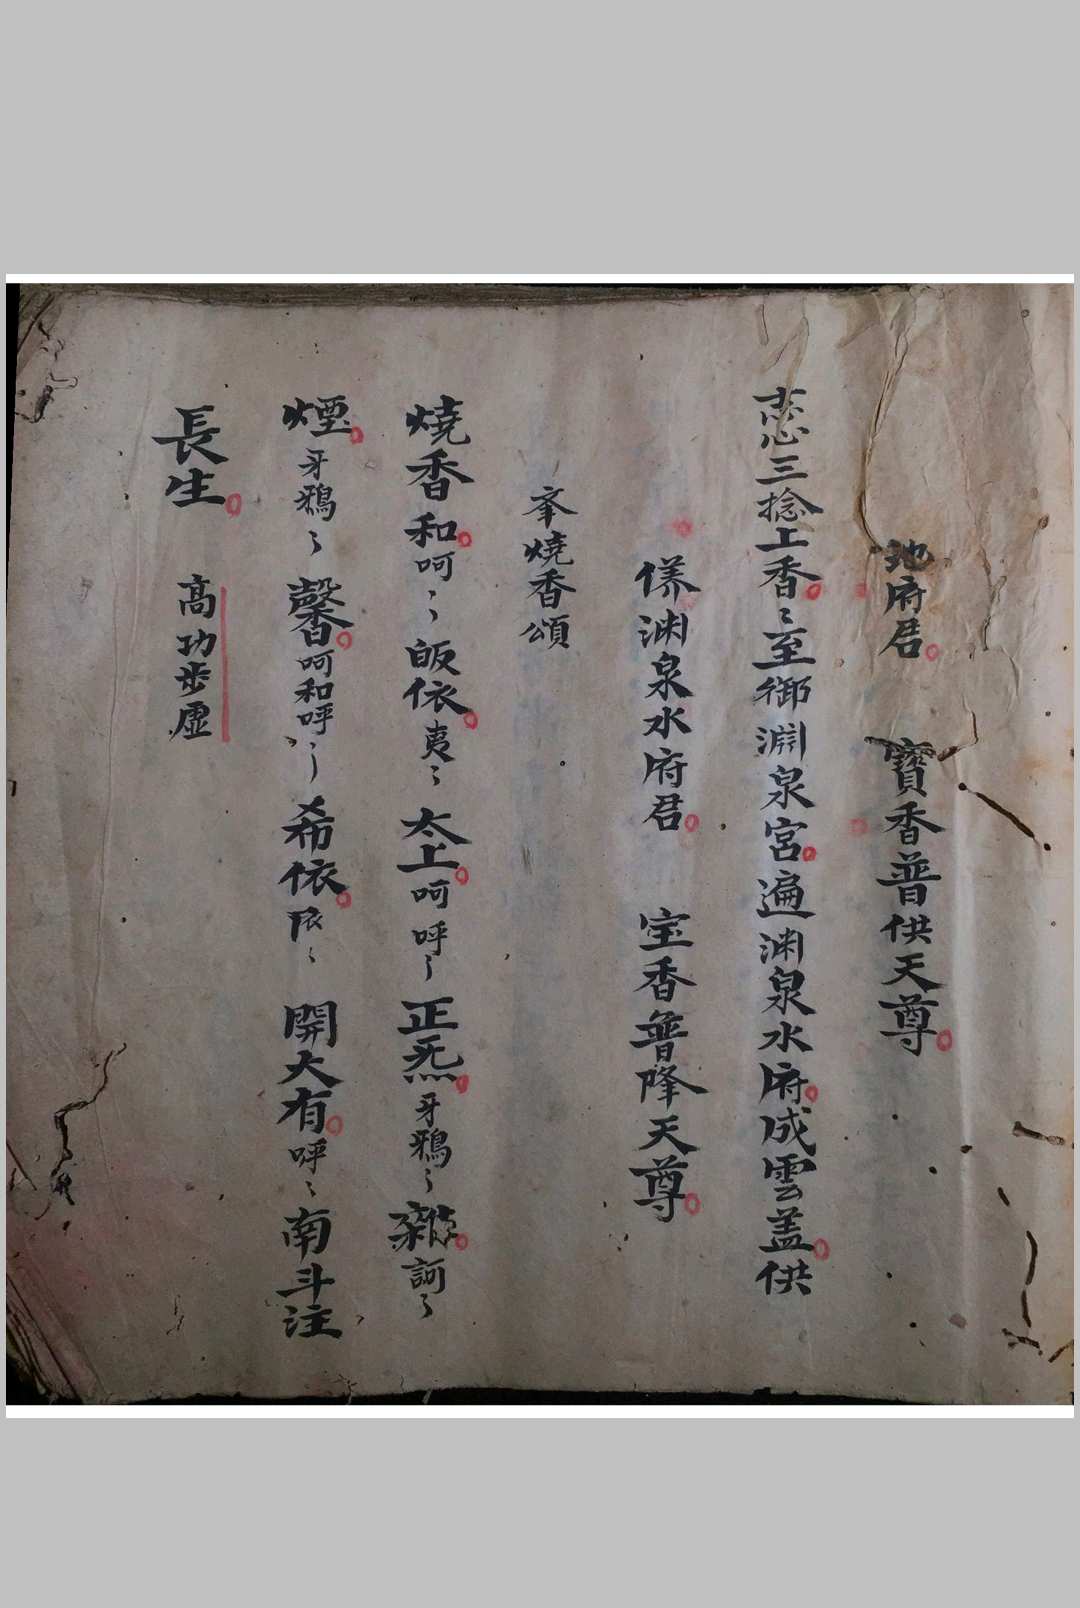 地府君。 寶香普供天尊。
志心三捻上香。〻至御淵泉宮。遍渊泉水府。成雲盖。供
𢖍渊泉水府君。 宝香普降天尊。
举燒香頌
燒香和。呵〻皈依。夷〻太上。呵呼〻正炁。牙鴉〻雜。訶〻
煙。牙鴉〻馨。呵和呼〻希依。依〻開大有。呼〻南斗注
長生。 高功步虛